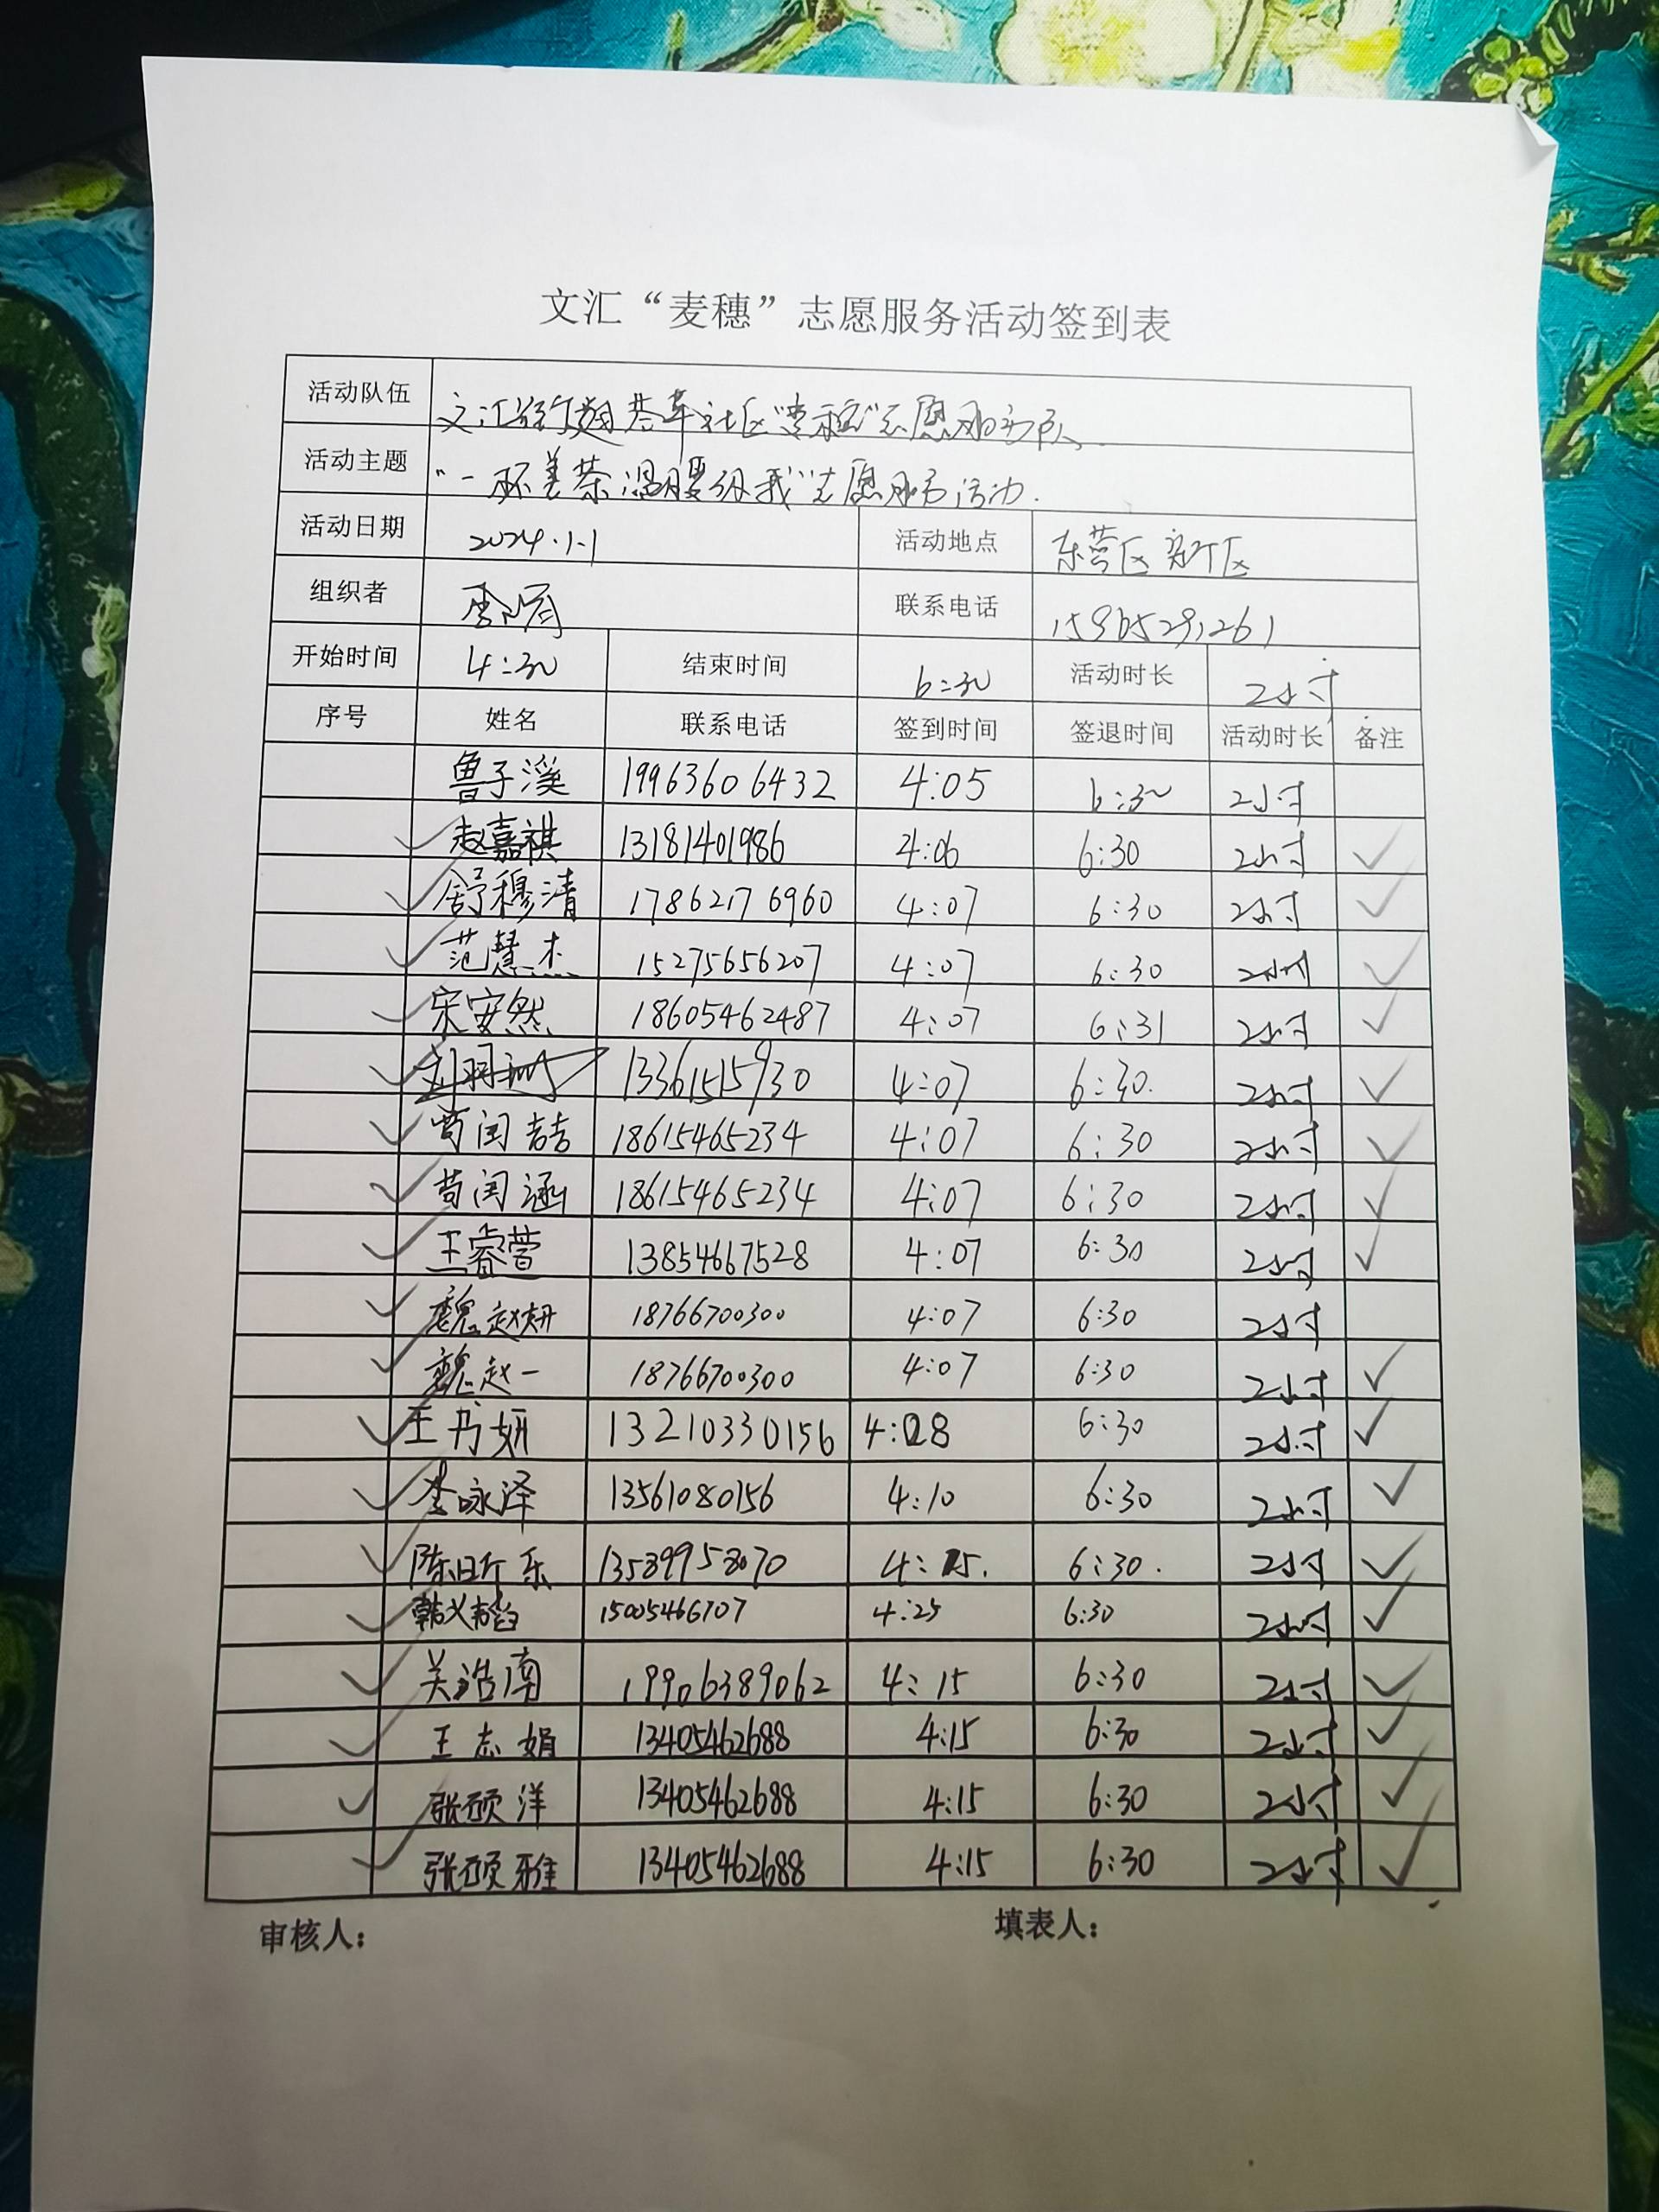 文汇“麦穗”志愿服务活动签到表
活动队伍 文汇街 社区“麦穗”志愿服务队
活动主题 “一杯姜茶温暖 我”志愿服务活动.
活动日期 2024.1.1 活动地点 东营区
组织者 李 联系电话
开始时间 4:30 结束时间 6:30 活动时长 2小时
序号 姓名 联系电话 签到时间 签退时间 活动时长 备注
鲁子溪 19963606432 4:05 6:30 2小时
赵嘉祺 13181401986 4:06 6:30 2小时 ✓
舒穆清 17862176960 4:07 6:30 2小时 ✓
范慧杰 15275656207 4:07 6:30 2小时 ✓
宋安然 18605462487 4:07 6:31 2小时 ✓
刘 13361515930 4:07 6:30. 2小时 ✓
苟闰喆 18615465234 4:07 6:30 2小时 ✓
苟闰涵 18615465234 4:07 6:30 2小时 ✓
王睿萱 13854667528 4:07 6:30 2小时 ✓
魏赵妍 18766700300 4:07 6:30 2小时
魏赵一 18766700300 4:07 6:30 2小时 ✓
王书妍 13210330156 4:08 6:30 2小时 ✓
李咏泽 13561080156 4:10 6:30 2小时 ✓
陈昕乐 13589958070 4:15. 6:30. 2小时 ✓
韩义韬 15005466707 4:25 6:30 2小时 ✓
关浩南 19906389062 4:15 6:30 2小时 ✓
王志娟 13405462688 4:15 6:30 2小时 ✓
张硕洋 13405462688 4:15 6:30 2小时 ✓
张硕雅 13405462688 4:15 6:30 2小时 ✓
审核人： 填表人：